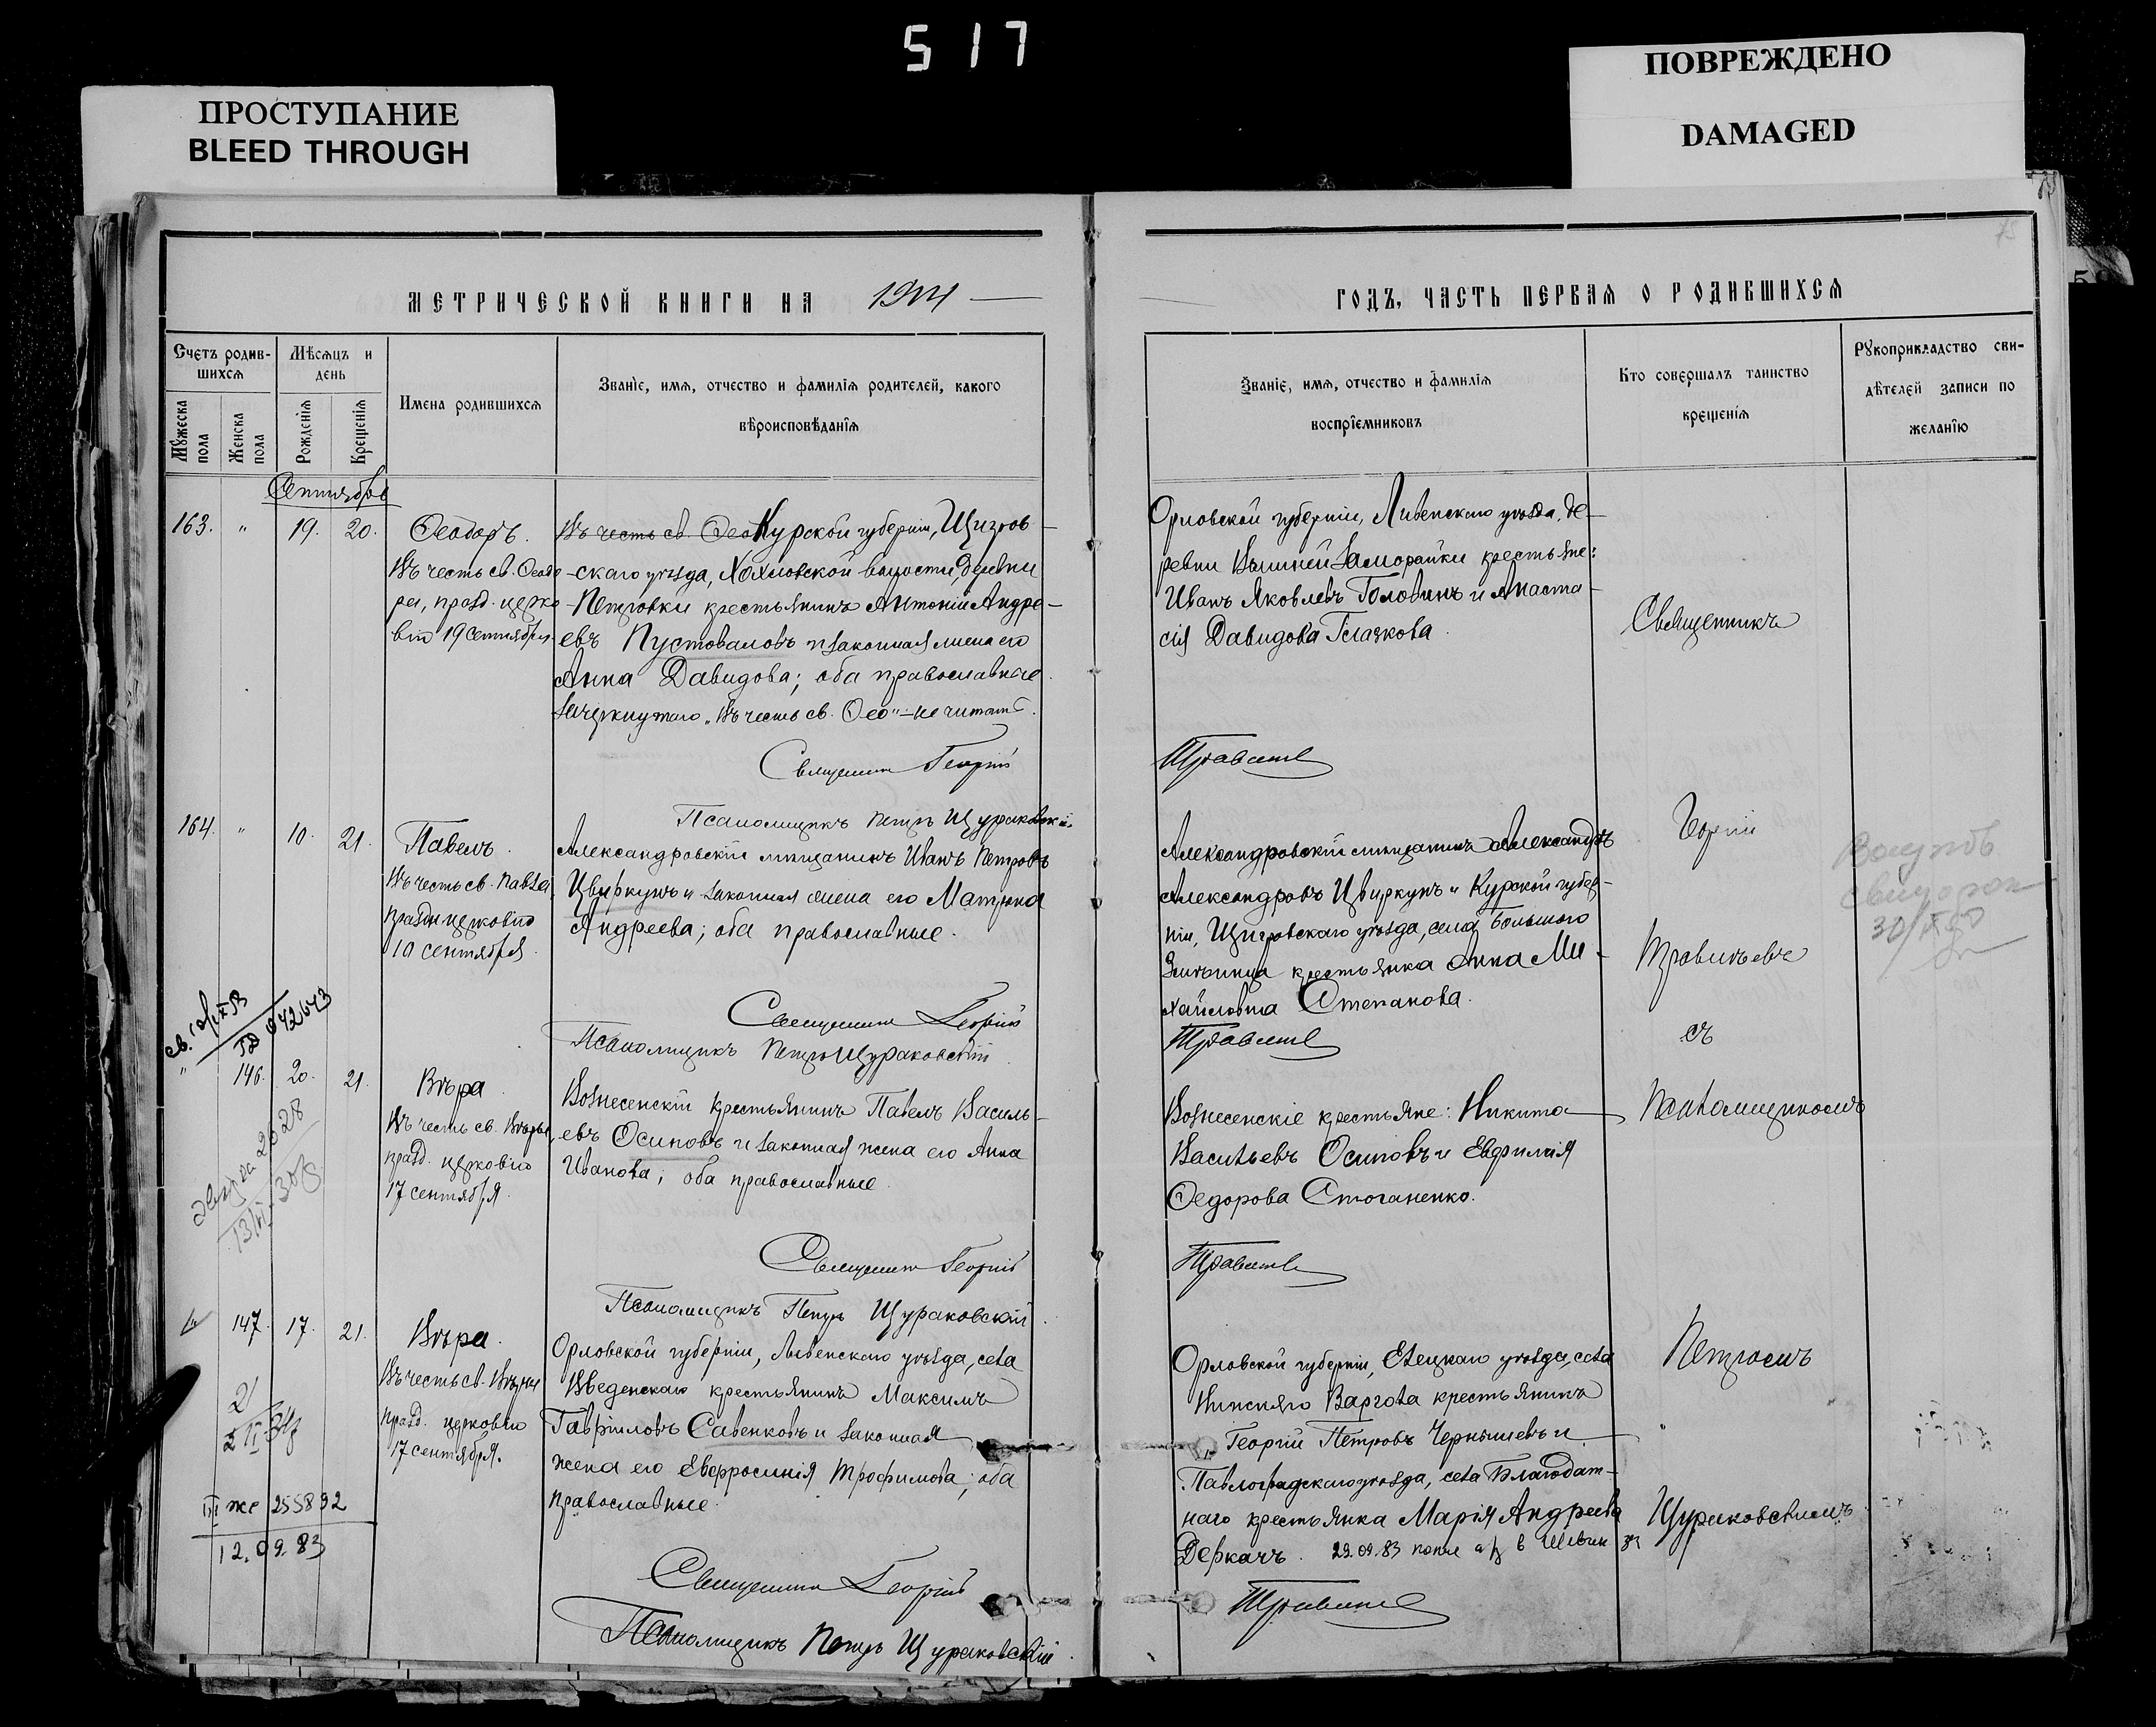 517
ПРОСТУПАНИЕ
BLEED THROUGH
ПОВРЕЖДЕНО
DAMAGED
МЕТРИЧЕСКОЙ КНИГИ НА
ГОДЪ, ЧАСТЬ ПЕРВАЯ О РОДИВШИХСЯ
Счетъ родив-
шихся
Мѣсяцъ и
день
Мужеска
пола
Женска
пола
Рожденія
Крещенія
Имена родившихся
Званіе, имя, отчество и фамилія родителей, какого
вѣроисповѣданія
Званіе, имя, отчество и фамилія
воспріемниковъ
Кто совершалъ таинство
крещенія
Рукоприкладство сви-
дѣтелей записи по
желанію
Сентябрь
163. " 19. 20.
Ѳеодоръ.
Въ честь св. Ѳеодо-
ра, празд. церко-
вію 19 сентября.
Въ честь св. Ѳео Курской губерніи, Щигров-
скаго уѣзда, Хохловской волости, деревни
Петровки крестьянинъ Антоній Андре-
евъ Пустоваловъ и законная жена его
Анна Давидова; оба православные.
Зачеркнутаго „Въ честь св. Ѳео" – не читать.
Священникъ Георгій
Псаломщикъ Петръ Щураковскій.
Орловской губерніи, Ливенскаго уѣзда, де-
ревни крестьяне:
Иванъ Яковлевъ Головинъ и Анаста-
сія Давидова Глазкова.
Священникъ
164. " 10. 21.
Павелъ.
Въ честь св. Павла,
праздн. церковію
10 сентября.
Александровскій мѣщанинъ Иванъ Петровъ
Цвиркунъ и законная жена его Матрона
Андреева; оба православные.
Священникъ Георгій
Псаломщикъ Петръ Щураковскій
Александровскій мѣщанинъ Александръ
Александровъ Цвиркунъ и Курской губер-
ніи, Щигровскаго уѣзда, села Большого
крестьянка Анна Ми-
хайловна Степанова.
Георгій
съ
" 146. 20. 21.
Вѣра
Въ честь св. Вѣры,
празд. церковію
17 сентября.
Вознесенскій крестьянинъ Павелъ Василь-
евъ Осиповъ и законная жена его Анна
Иванова; оба православные.
Священникъ Георгій
Псаломщикъ Петръ Щураковскій.
Вознесенскіе крестьяне: Никита
Васильевъ Осиповъ и Евфимія
Ѳедорова Стоганенко.
Псаломщикомъ
147. 17. 21.
Вѣра.
Въ честь св. Вѣры
празд. церковію
17 сентября.
Орловской губерніи, Ливенскаго уѣзда, села
Введенскаго крестьянинъ Максимъ
Гавріиловъ Савенковъ и законная
жена его Евфросинія Трофимова; оба
православные.
Священникъ Георгій
Псаломщикъ Петръ Щураковскій.
Орловской губерніи, Елецкаго уѣзда, села
Нижняго Варгола крестьянинъ
Георгій Петровъ Чернышевъ и
Павлоградскаго уѣзда, села Благодат-
наго крестьянка Марія Андреева
Деркачъ. 29.09.83
Петромъ
Щураковскимъ.
255892
12.09.83